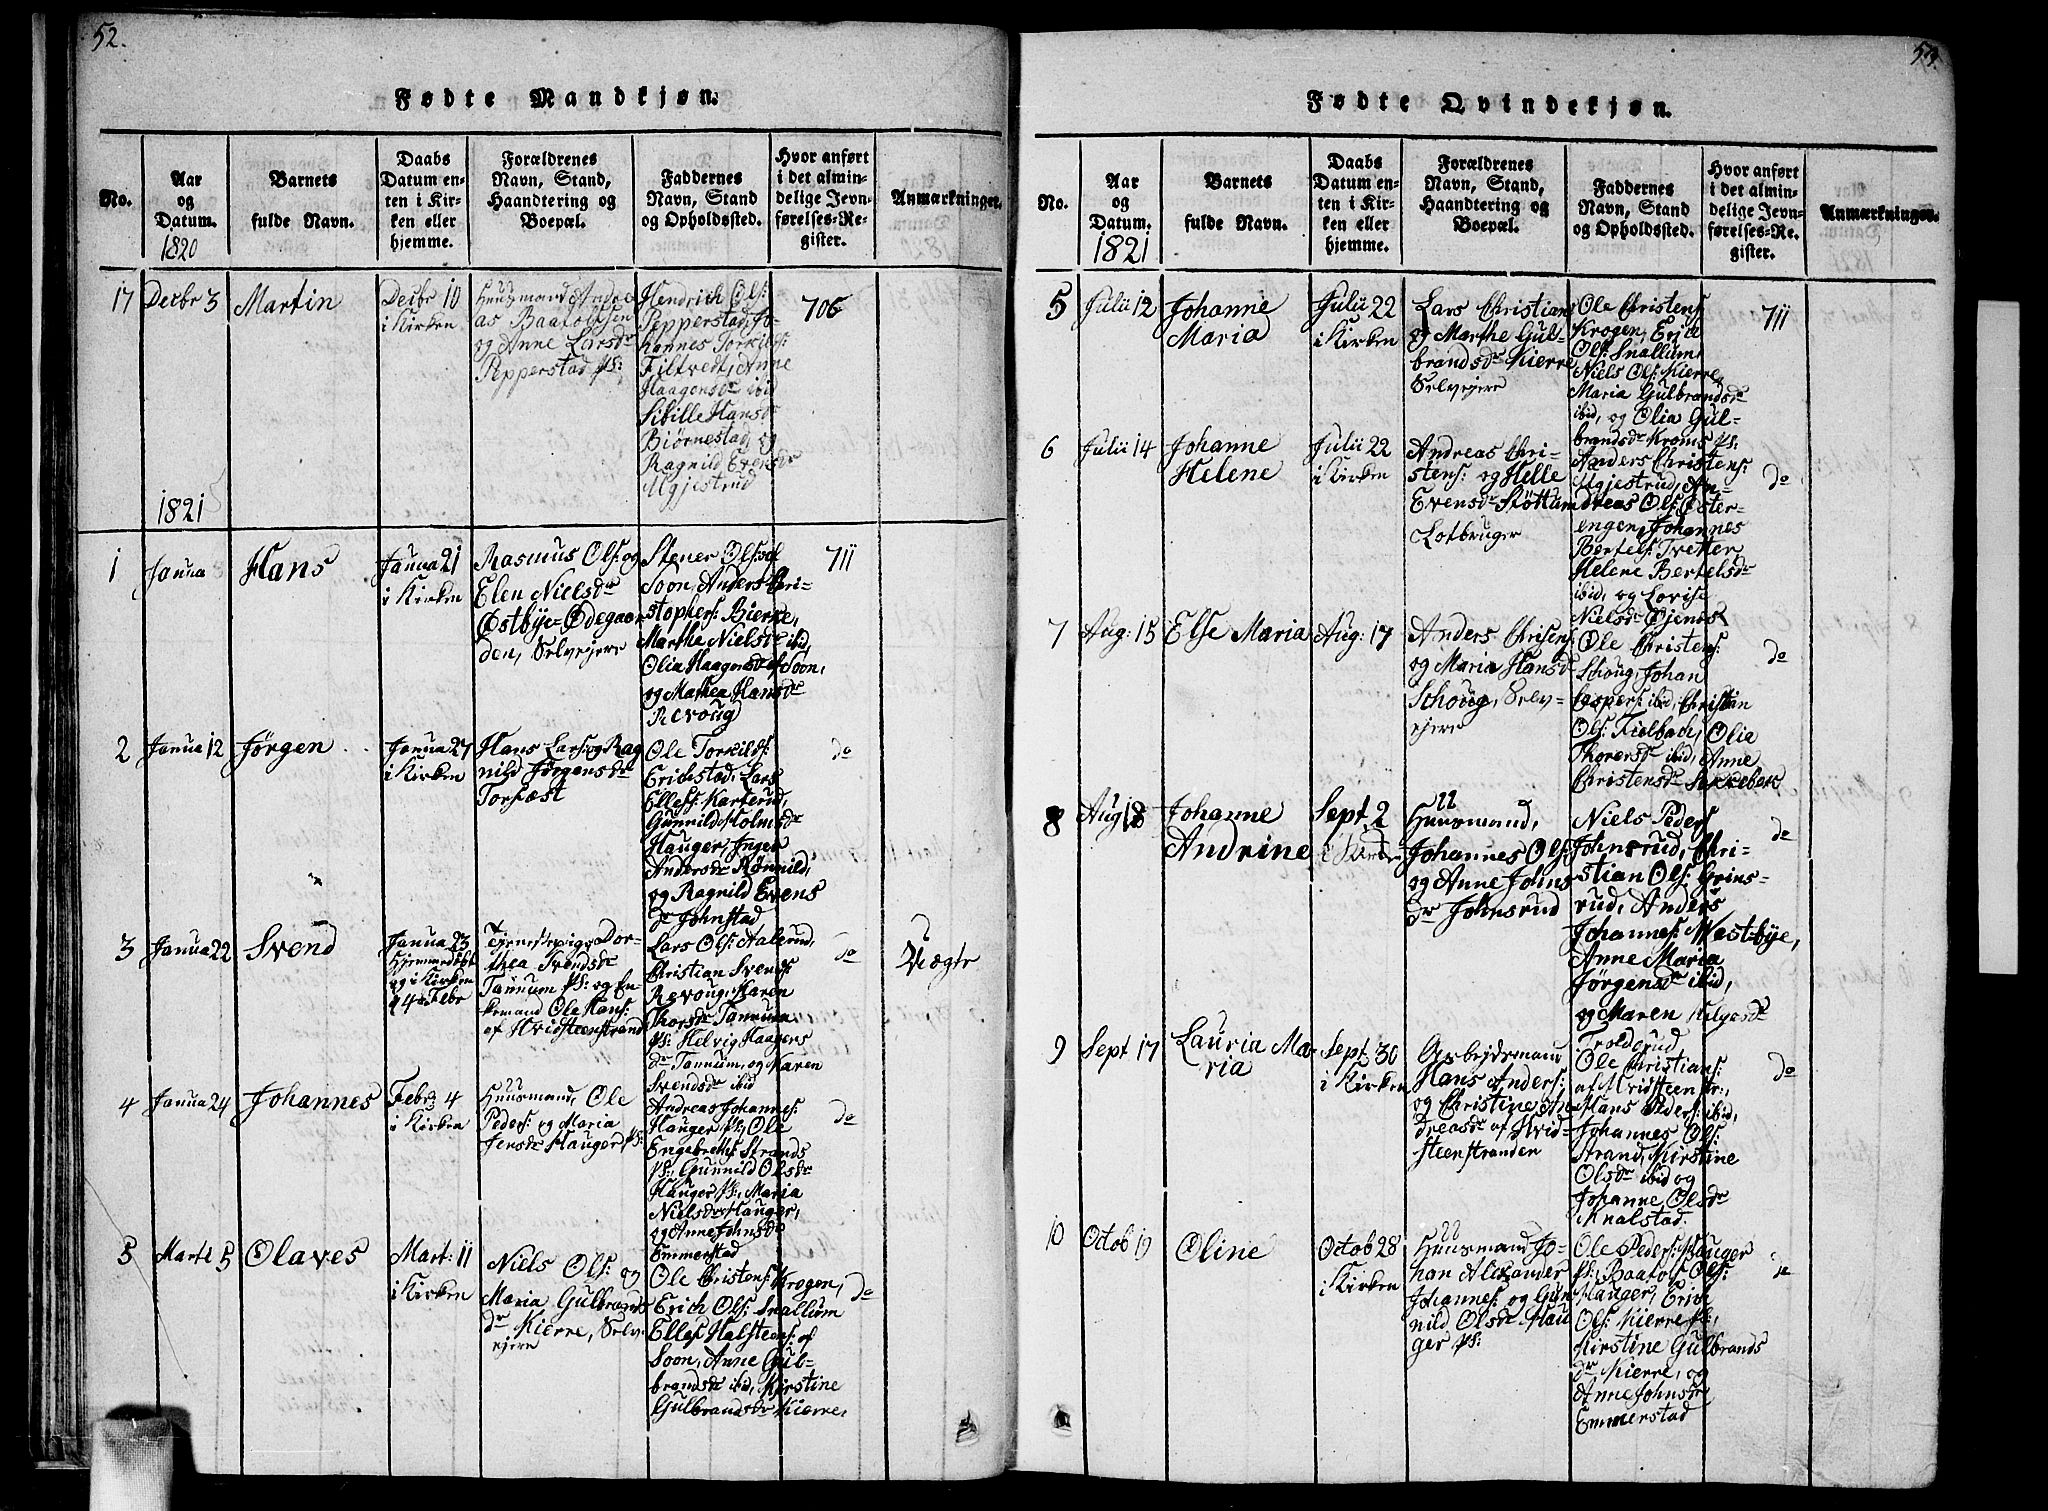 52.
Fødte Mandkjøn.
No.
Aar
og
Datum.
1820
Barnets
fulde Navn.
Daabs
Datum en-
ten i Kir-
ken eller
hjemme.
Forældrenes
Navn, Stand,
Haandtering og
Boepæl.
Faddernes
Navn, Stand
og Opholdssted.
Hvor anført
i det almin-
delige Jevn-
førelses-Re-
gister.
Anmærkninger.
17
Decbr 3
Martin
Decbr 10
i Kirken
Huusmand Andre
as Baatolfsen
og Anne Larsdr
Pepperstad Pl:
Hendrich Ols:
Pepperstad, Jo-
hannes Torkilds:
Filtvedt, Anne
Haagensdr ibid
Sibille Hansdr
Biørnestad, og
Ragnild Evensdr
Ulgjestrud
706
1821
1
Janua
Hans
Janua 21
i Kirken
Rasmus Ols: og
Elen Nielsdr
Østbye-Ødegaar
den, Selvejere
Stener Ols: af
Soon, Anders Chri-
stophers: Bierke,
Marthe Nielsdr ibid,
Olia Haagensdr af Soon,
og Mathea Hansdr
Revoug
711
2
Janua 12
Jørgen
Janua 27
i Kirken
Hans Lars: og Rag
nild Jørgensdr
Torfæst
Ole Torkilds:
Erichstad, Lars
Ellefs: Karterud,
Gunnild Holmsdr
Hauger, Inger
Andersdr Rønnild,
og Ragnild Evens
dr Johnstad
do
3
Janua 22
Svend
Janua 23
hjemmedøbt
og i Kirken
4de Febr
Tjenestepige Dor-
thea Svendsdr
Tannum Pl: og En-
kemand Ole Hans:
af Hvidsteenstrand
Lars Ols: Aalerud,
Christian Svends:
Revoug, Karen
Thorsdr Tannum
Pl: Helvig Haagens
dr Tannum, og Karen
Svendsdr ibid
do
Uægte
4
Janua 24
Johannes
Febr: 4
i Kirken
Huusmand, Ole
Peders: og Maria
Jensdr Hauger Pl:
Andreas Johannes:
Hauger Pl:, Ole
Engebretts: Strands
Pl:, Gunnild Olsdr
Hauger Pl:, Maria
Nielsdr Hauger,
og Anne Johnsdr
Emmerstad
do
5
Marti 5
Olaves
Mart: 11
i Kirken
Niels Ols: og
Maria Gulbrands
dr Kierre, Selv
ejere
Ole Christens: Krogen,
Erich Ols: Snallum
Ellef Halstens: af
Soon, Anne Gul-
brandsdr ibid, Kirstine
Gulbrandsdr Kierre,
do
53.
Fødte Qvindekjøn.
No.
Aar
og
Datum.
1821
Barnets
fulde Navn.
Daabs
Datum en-
ten i Kir-
ken eller
hjemme.
Forældrenes
Navn, Stand,
Haandtering og
Boepæl.
Faddernes
Navn, Stand
og Opholdssted.
Hvor anført
i det almin-
delige Jevn-
førelses-Re-
gister.
Anmærkninger.
5
Julii 12
Johanne
Maria
Julii 22
i Kirken
Lars Christians
og Marthe Gul-
brandsdr Kierre
Selvejere
Ole Christens:
Krogen, Erich
Ols: Snallum,
Niels Ols: Kierre,
Maria Gulbrandsdr
ibid, og Olia Gul-
brandsdr Kroms Pl:
711
6
Julii 14
Johanne
Helene
Julii 22
i Kirken
Andreas Chri-
stens: og Helle
Evensdr Støttum
Lotbruger
Anders Christens:
Ulgjestrud, An-
dreas Ols: Øster-
engen, Johannes
Bertels: Tvetter,
Helene Bertelsdr
ibid, og Lovise
Nielsdr Ejenes
do
7
Aug: 15
Else Maria
Aug: 17
Anders Chrisens:
og Maria Hansdr
Schoug, Selv-
ejere
Ole Christens:
Schoug, Johan
Caspers: ibid, Christian
Ols: Fielbach, Olia
Thorersdr ibid, Anne
Christensdr Sekkebek
do
8
Aug 18
Johanne
Andrine
Sept 2
i Kirken
Huusmand,
Johannes Ols:
og Anne Johns
dr Johnsrud
Niels Peders
Johnsrud, Chri-
stian Ols: Grins-
rud, Anders
Johannes: Westbye,
Anne Maria
Jørgensdr ibid,
og Maren Helgesdr
Trolderud
do
9
Sept 17
Lauria Ma-
ria
Sept. 30
i Kirken
Arbejdsmand
Hans Anders:
og Christine An
dreasdr af Hvid-
steenstranden
Ole Christians:
af Hvidsteenstr:,
Hans Peders: ibid,
Johannes Ols:
Strand, Kirstine
Olsdr ibid og
Johanne Olsdr
Knalstad.
do
10
Octob 19
Oline
Octob 28
i Kirken
Huusmand Jo-
han Alexander
Johannes: og Gun
nild Olsdr Hau
ger Pl:
Ole Peders: Hauger
Pl: Baatolf Ols:
Hauger, Erich
Ols: Kierre Pl:,
Kirstine Gulbrands
dr Kierre, og
Anne Johnsdr
Emmerstad
do